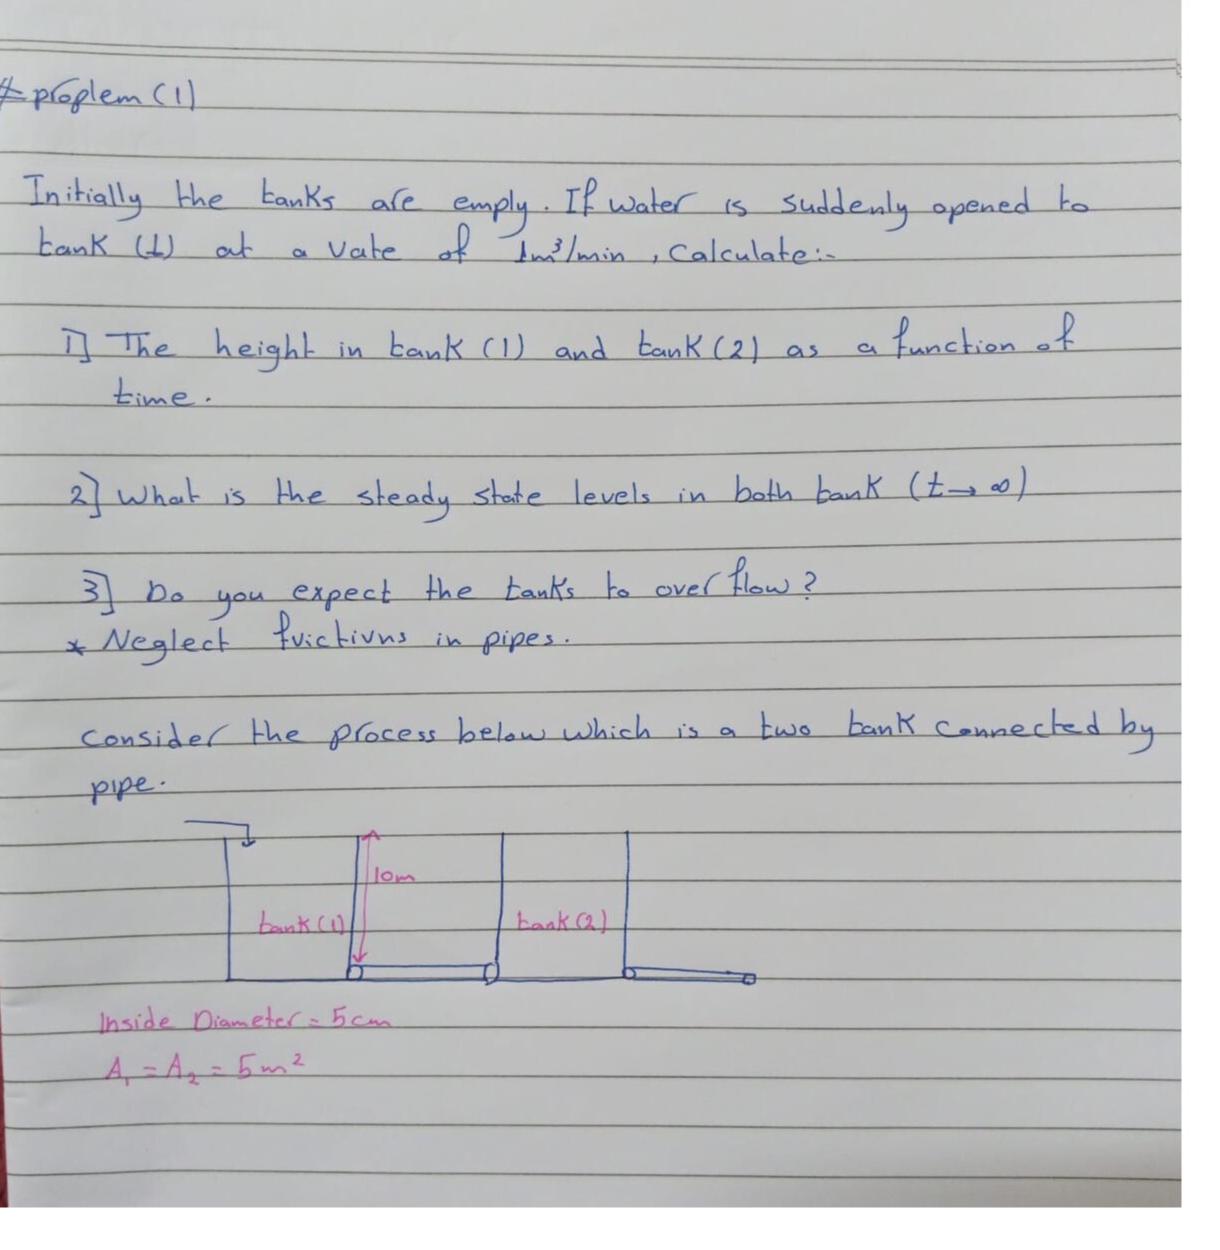 # proplem (1)
Initially the tanks are emply. If water is suddenly opened to
tank (1) at a vate of 1m³/min , Calculate:-
1] The height in tank (1) and tank (2) as a function of
time.
2] What is the steady state levels in both tank (t→ ∞)
3] Do you expect the tanks to over flow?
* Neglect frictivns in pipes.
Consider the process below which is a two tank connected by
pipe.
10m
tank (1)
tank (2)
Inside Diameter = 5cm
A₁ = A₂ = 5m²